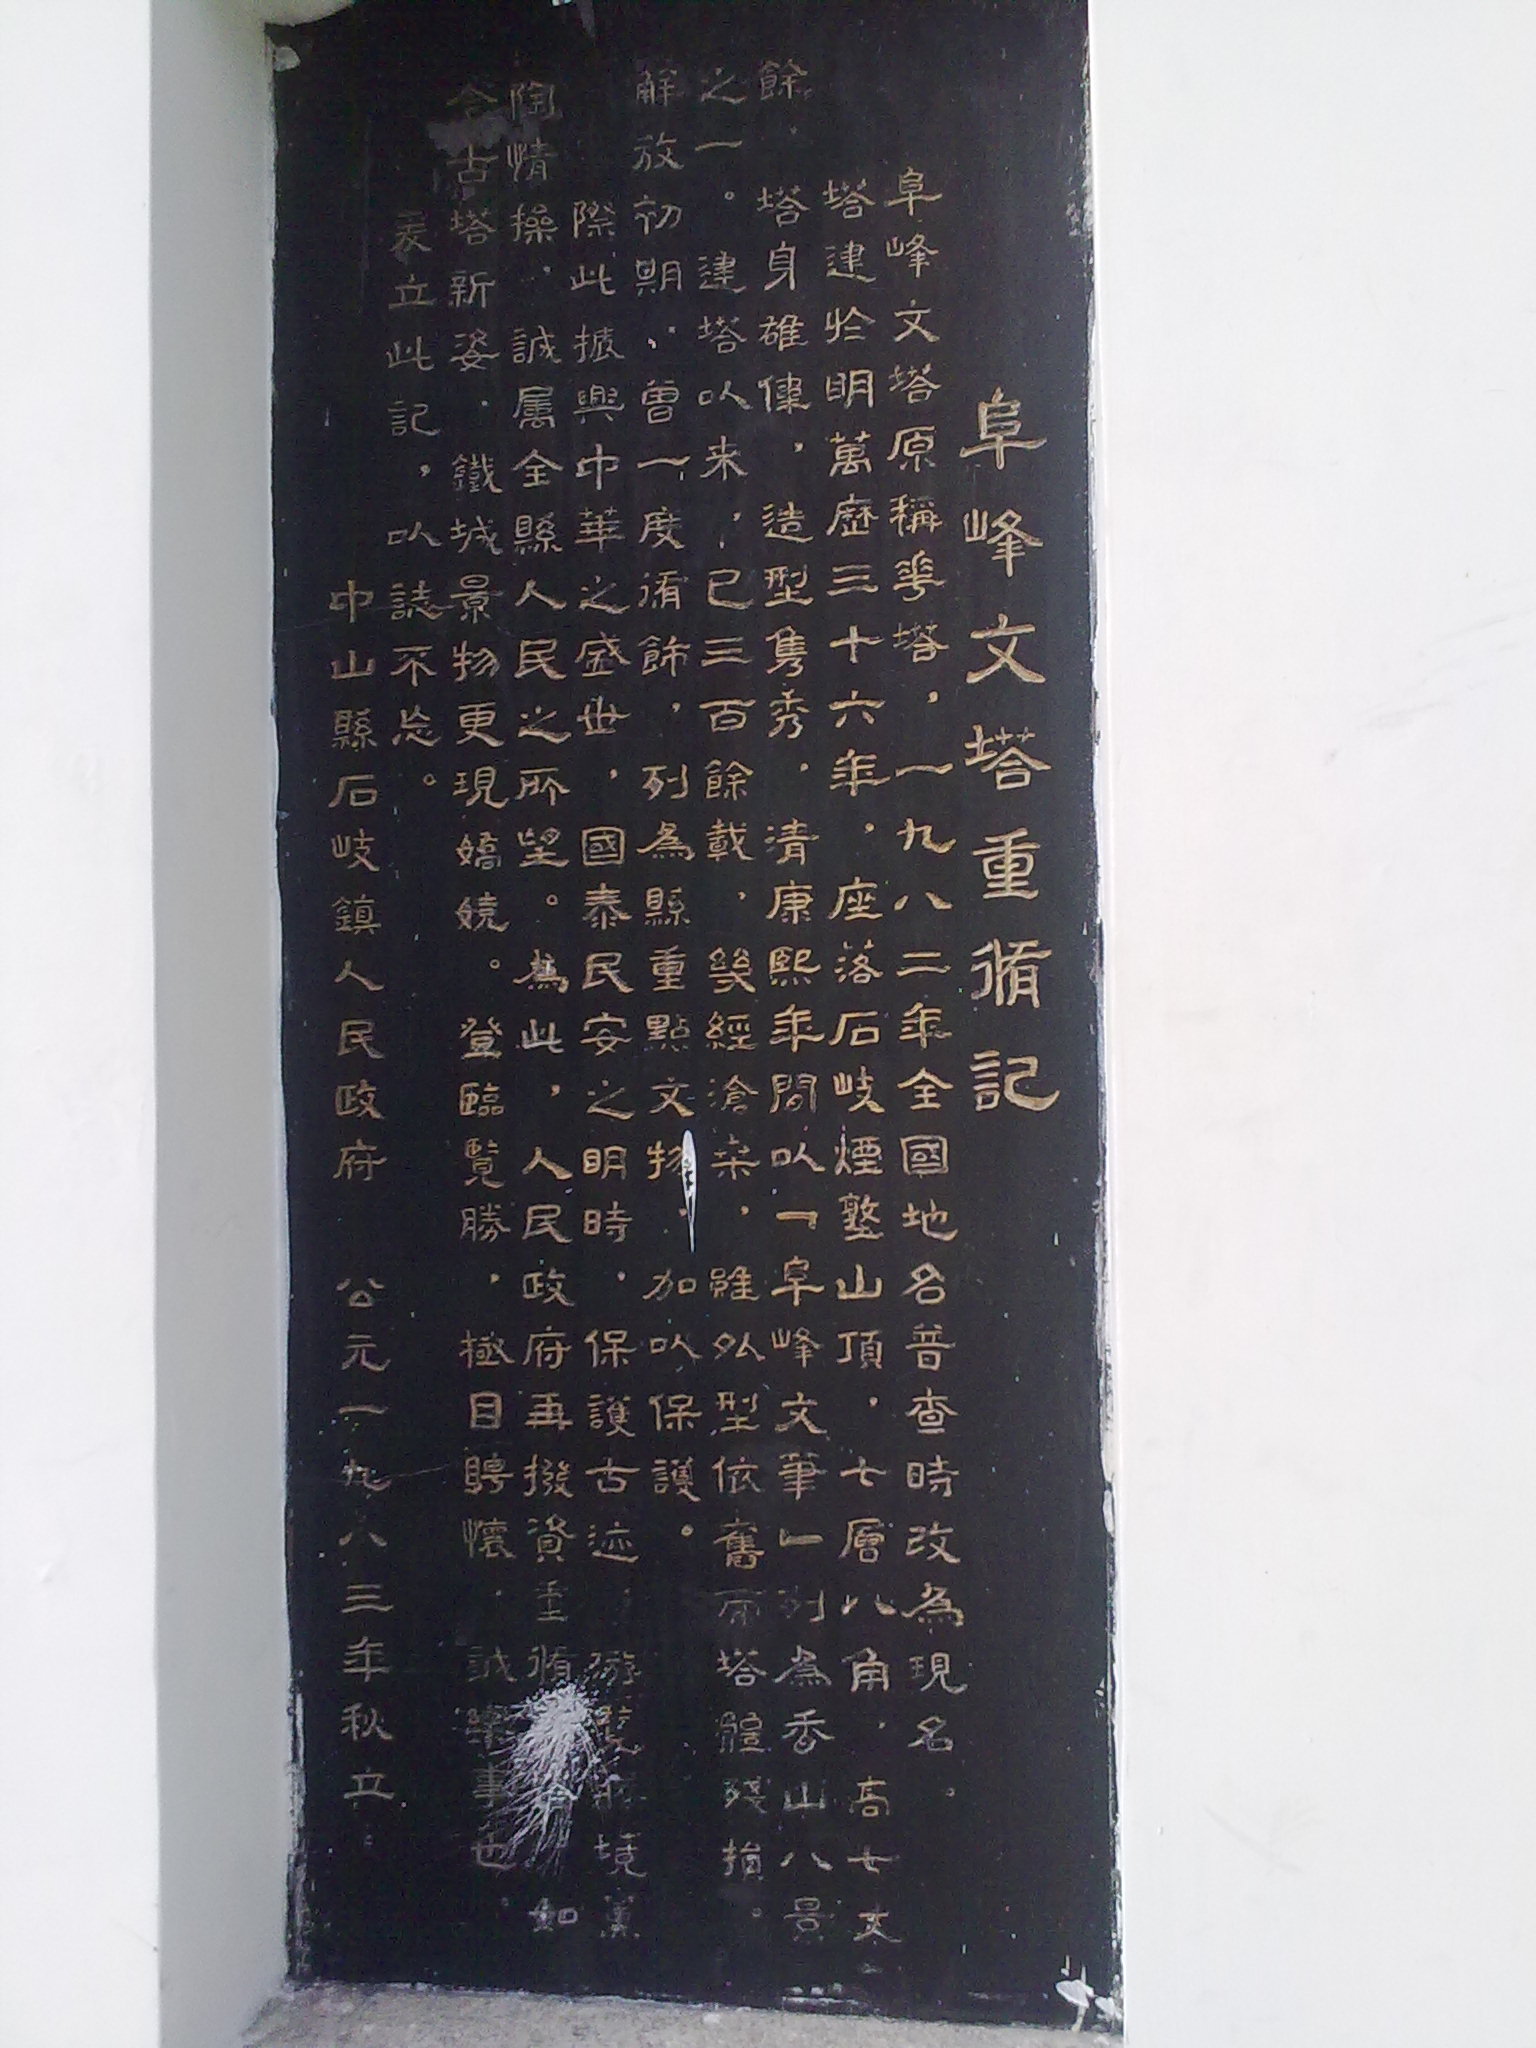 阜峰文塔重脩記
阜峰文塔原稱花塔，一九八二年全國地名普查時改為現名。
塔建於明萬歷三十六年，座落石岐煙墩山頂，七層八角，高七丈
餘，塔身雄偉，造型雋秀，清康熙年間以「阜峰文筆」列為香山八景
之一。建塔以来，已三百餘載，幾經滄桒，雖外型依舊而塔體殘損。
解放初期，曾一度脩飾，列為縣重點文物，加以保護。
際此振興中華之盛世，國泰民安之明時，保護古迹，游覽勝境，薰
陶情操，誠属全縣人民之所望。為此，人民政府再撥資重脩 如
今古塔新姿，鐵城景物更現嬌嬈。登臨覽勝，極目騁懷，誠樂事也。
爰立此記，以誌不忘。
中山縣石岐鎮人民政府 公元一九八三年秋立